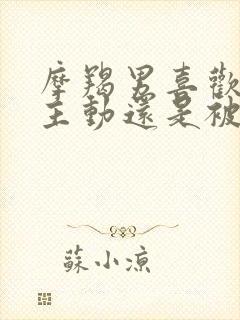 摩羯男喜歡
主動還是被
蘇小涼